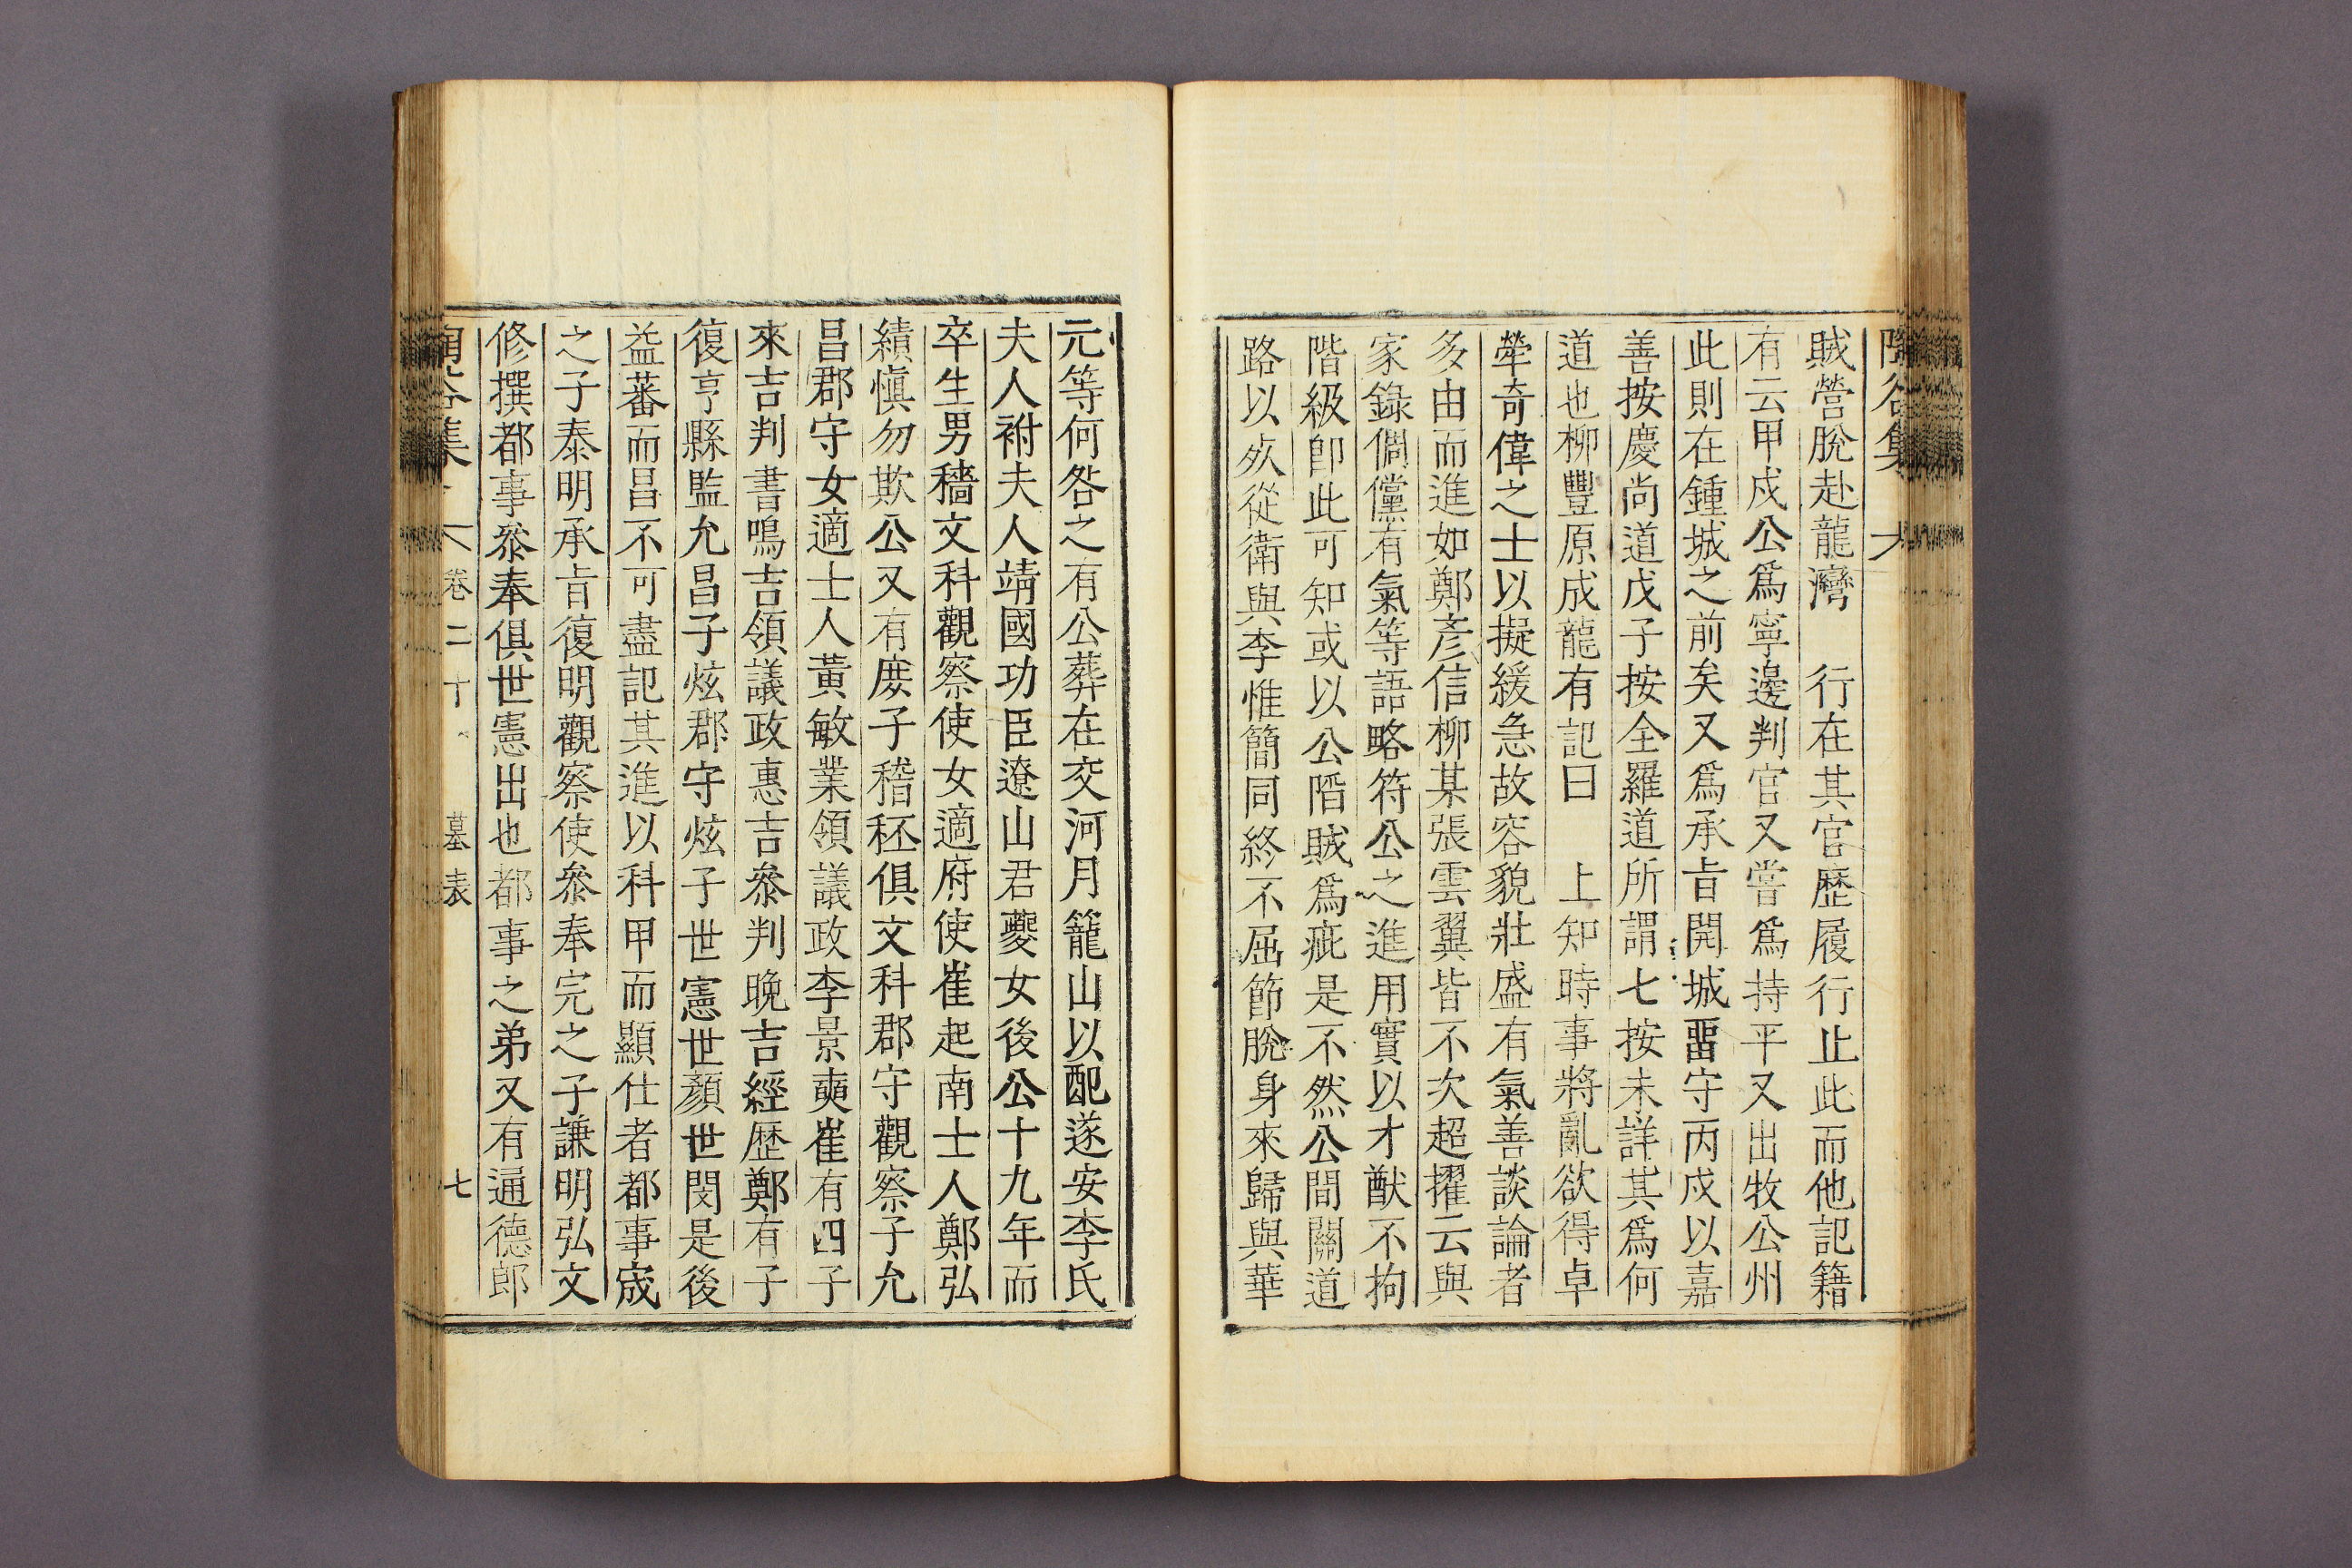 賊營脫赴龍灣　行在其官歷履行止此而他記籍
有云甲戍公爲寧邊判官又嘗爲持平又出牧公州
此則在鍾城之前矣又爲承㫖開城畱守丙戍以嘉
善按慶尚道戊子按全羅道所謂七按未詳其爲何
道也柳豐原成龍有記曰　上知時事將亂欲得卓
犖奇偉之士以擬緩急故容貌壯盛有氣善談論者
多由而進如鄭彥信柳某張雲翼皆不次超擢云與
家錄倜儻有氣等語略符公之進用實以才猷不拘
階級卽此可知或以公陷賊爲疵是不然公間關道
路以从從衛與李惟簡同終不屈節脫身來歸與華
元等何咎之有公葬在交河月籠山以配遂安李氏
夫人祔夫人靖國功臣遼山君夔女後公十九年而
卒生男穡文科觀察使女適府使崔起南士人鄭弘
績愼勿欺公又有庶子稽秠俱文科郡守觀察子允
昌郡守女適士人黃敏業領議政李景奭崔有四子
來吉判書鳴吉領議政惠吉叅判晚吉經歷鄭有子
復亨縣監允昌子炫郡守炫子世憲世顏世閔是後
益蕃而昌不可盡記其進以科甲而顯仕者都事宬
之子泰明承㫖復明觀察使叅奉完之子謙明弘文
修撰都事叅奉俱世憲出也都事之弟又有通德郎
卷二十　墓表　七